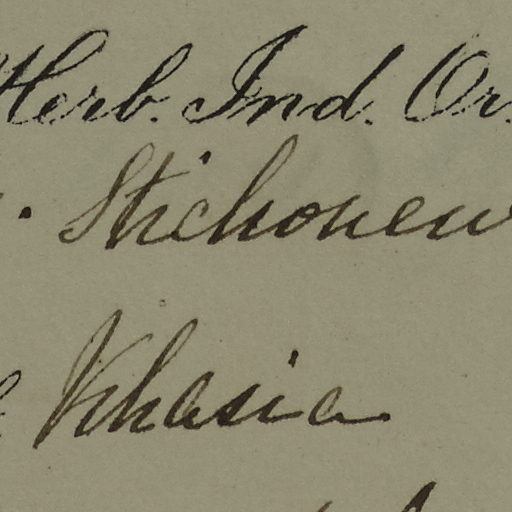 Herb. Ind. Or.
Stichoneu
Khasia